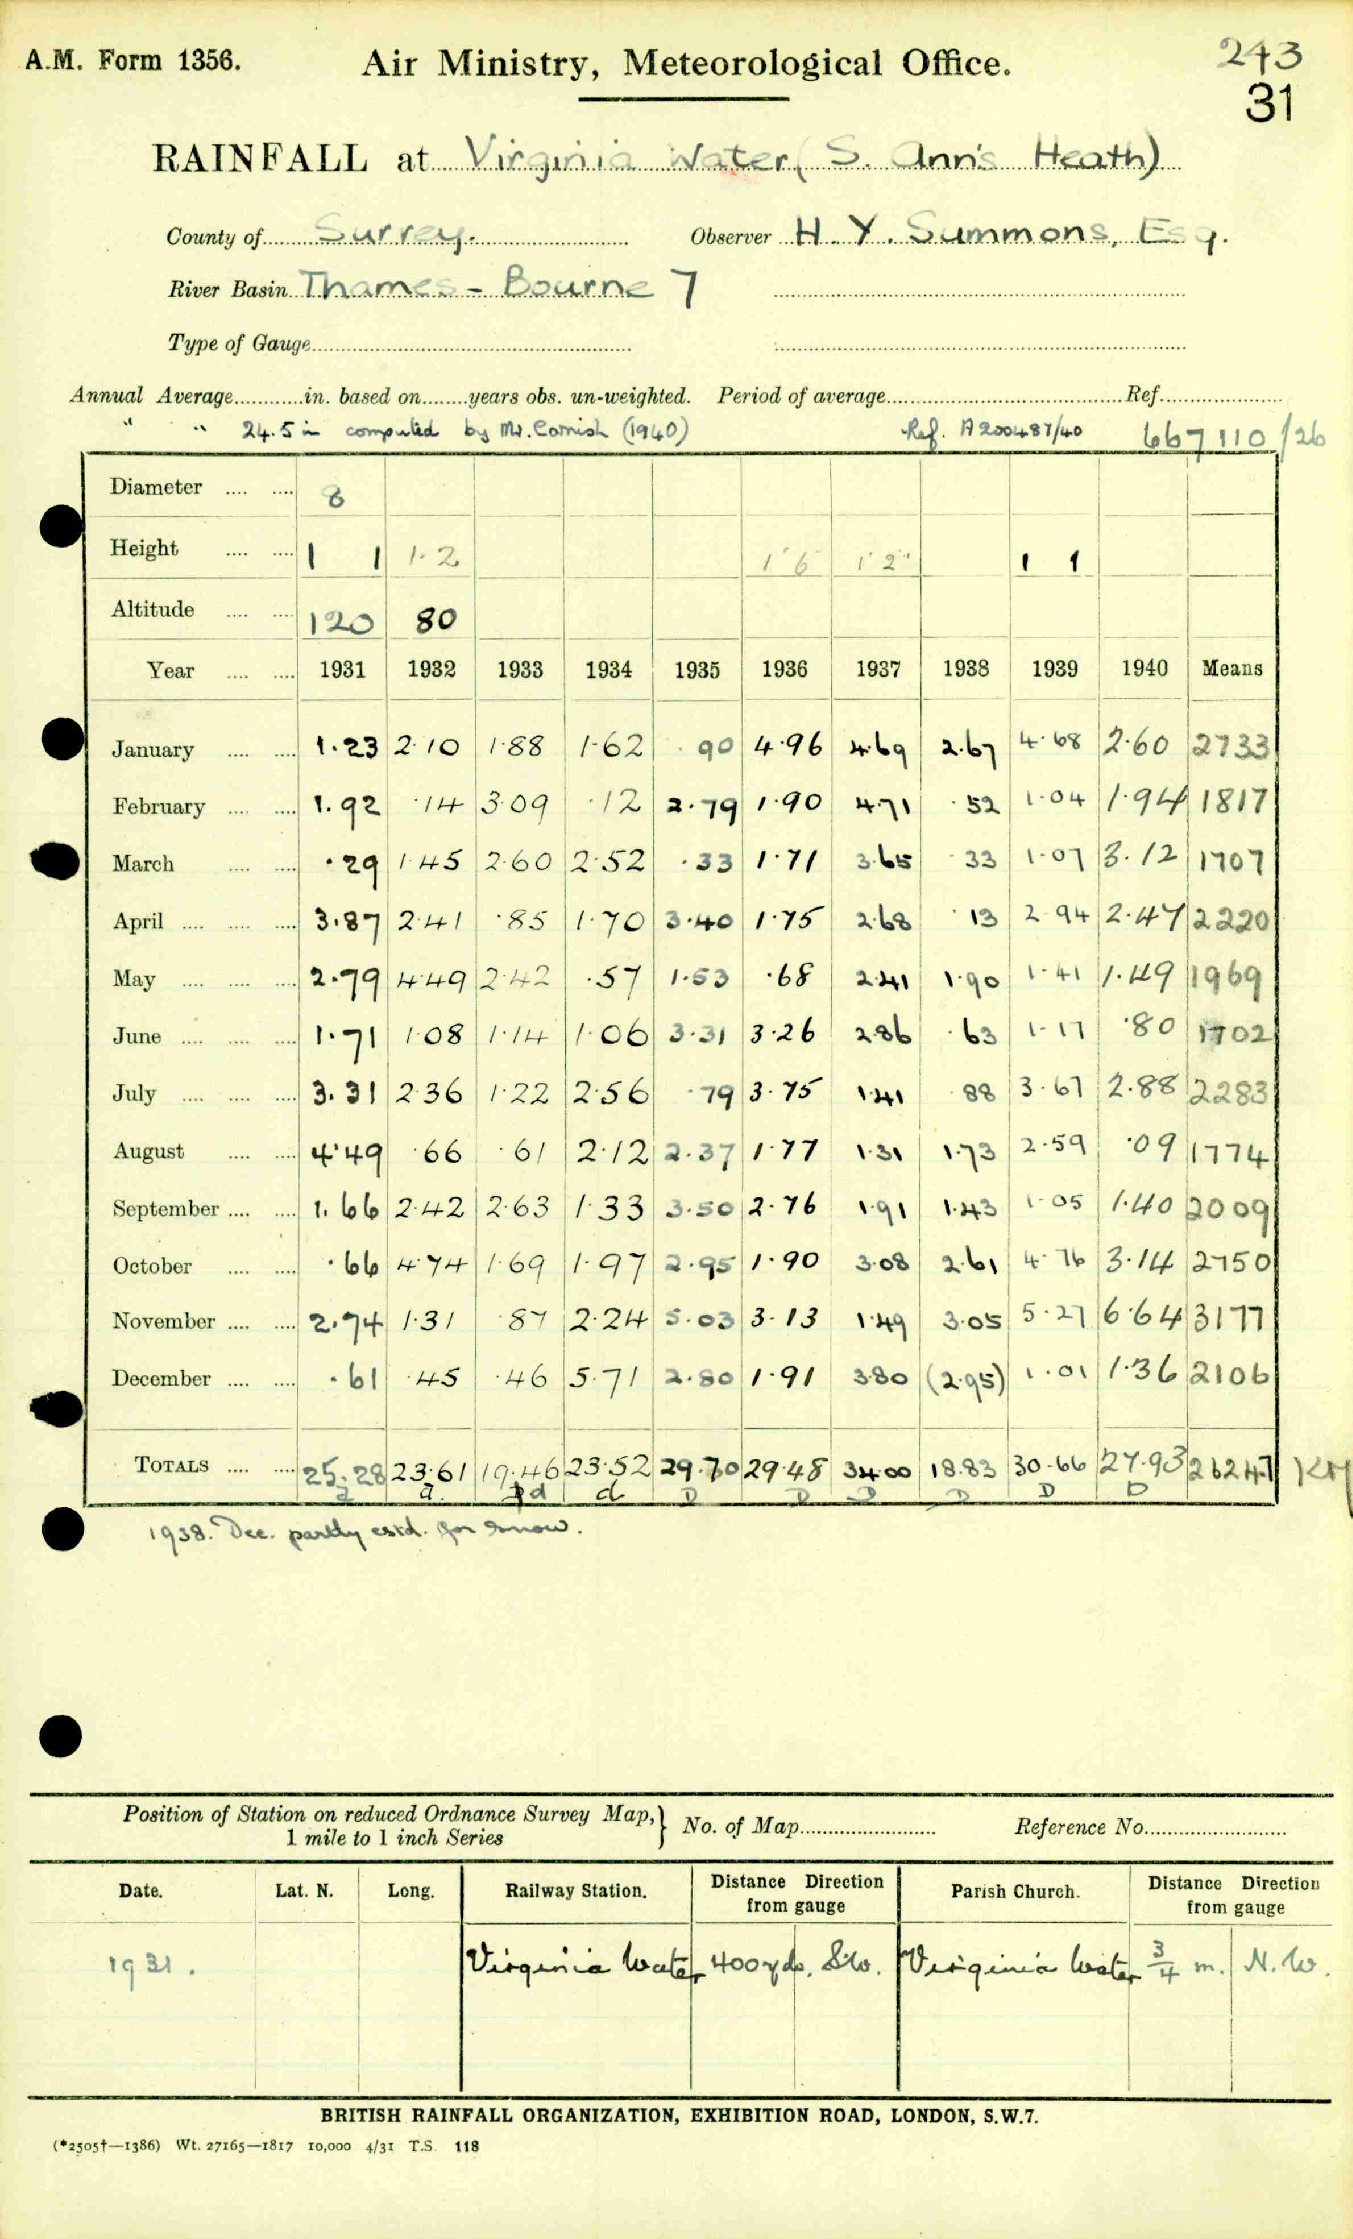 A.M. Form 1356. Air Ministry, Meteorological Office. 243
31
RAINFALL at Virginia Water (S. Ann's Heath)
County of Surrey. Observer H. Y. Summons, Esq.
River Basin Thames - Bourne 7
Type of Gauge
Annual Average in. based on years obs. un-weighted. Period of average Ref.
" " 24.5 in computed by Mr. Cornish (1940) Ref. A200487/40 667110/26
Diameter 8
Height 1 1 1·2 1'6 1'2" 1 1
Altitude 120 80
Year 1931 1932 1933 1934 1935 1936 1937 1938 1939 1940 Means
January 1·23 2·10 1·88 1·62 ·90 4·96 4·69 2·67 4·68 2·60 2733
February 1·92 ·14 3·09 ·12 2·79 1·90 4·71 ·52 1·04 1·94 1817
March ·29 1·45 2·60 2·52 ·33 1·71 3·65 ·33 1·07 3·12 1707
April 3·87 2·41 ·85 1·70 3·40 1·75 2·68 ·13 2·94 2·47 2220
May 2·79 4·49 2·42 ·57 1·53 ·68 2·41 1·90 1·41 1·49 1969
June 1·71 1·08 1·14 1·06 3·31 3·26 2·86 ·63 1·17 ·80 1702
July 3·31 2·36 1·22 2·56 ·79 3·75 1·41 ·88 3·67 2·88 2283
August 4·49 ·66 ·61 2·12 2·37 1·77 1·31 1·73 2·59 ·09 1774
September 1·66 2·42 2·63 1·33 3·50 2·76 1·91 1·43 1·05 1·40 2009
October ·66 4·74 1·69 1·97 2·95 1·90 3·08 2·61 4·76 3·14 2750
November 2·74 1·31 ·87 2·24 5·03 3·13 1·49 3·05 5·27 6·64 3177
December ·61 ·45 ·46 5·71 2·80 1·91 3·80 (2·95) 1·01 1·36 2106
TOTALS 25·28 23·61 19·46 23·52 29·70 29·48 34·00 18·83 30·66 27·93 26247
a a d d D D D D D D
1938. Dec. partly estd. for snow.
Position of Station on reduced Ordnance Survey Map, } No. of Map Reference No.
1 mile to 1 inch Series
Date. Lat. N. Long. Railway Station. Distance Direction from gauge Parish Church. Distance Direction from gauge
1931. Virginia Water 400 yds. S.W. Virginia Water 3/4 m. N.W.
BRITISH RAINFALL ORGANIZATION, EXHIBITION ROAD, LONDON, S.W.7.
(*2505†—1386) Wt. 27165—1817 10,000 4/31 T.S. 118